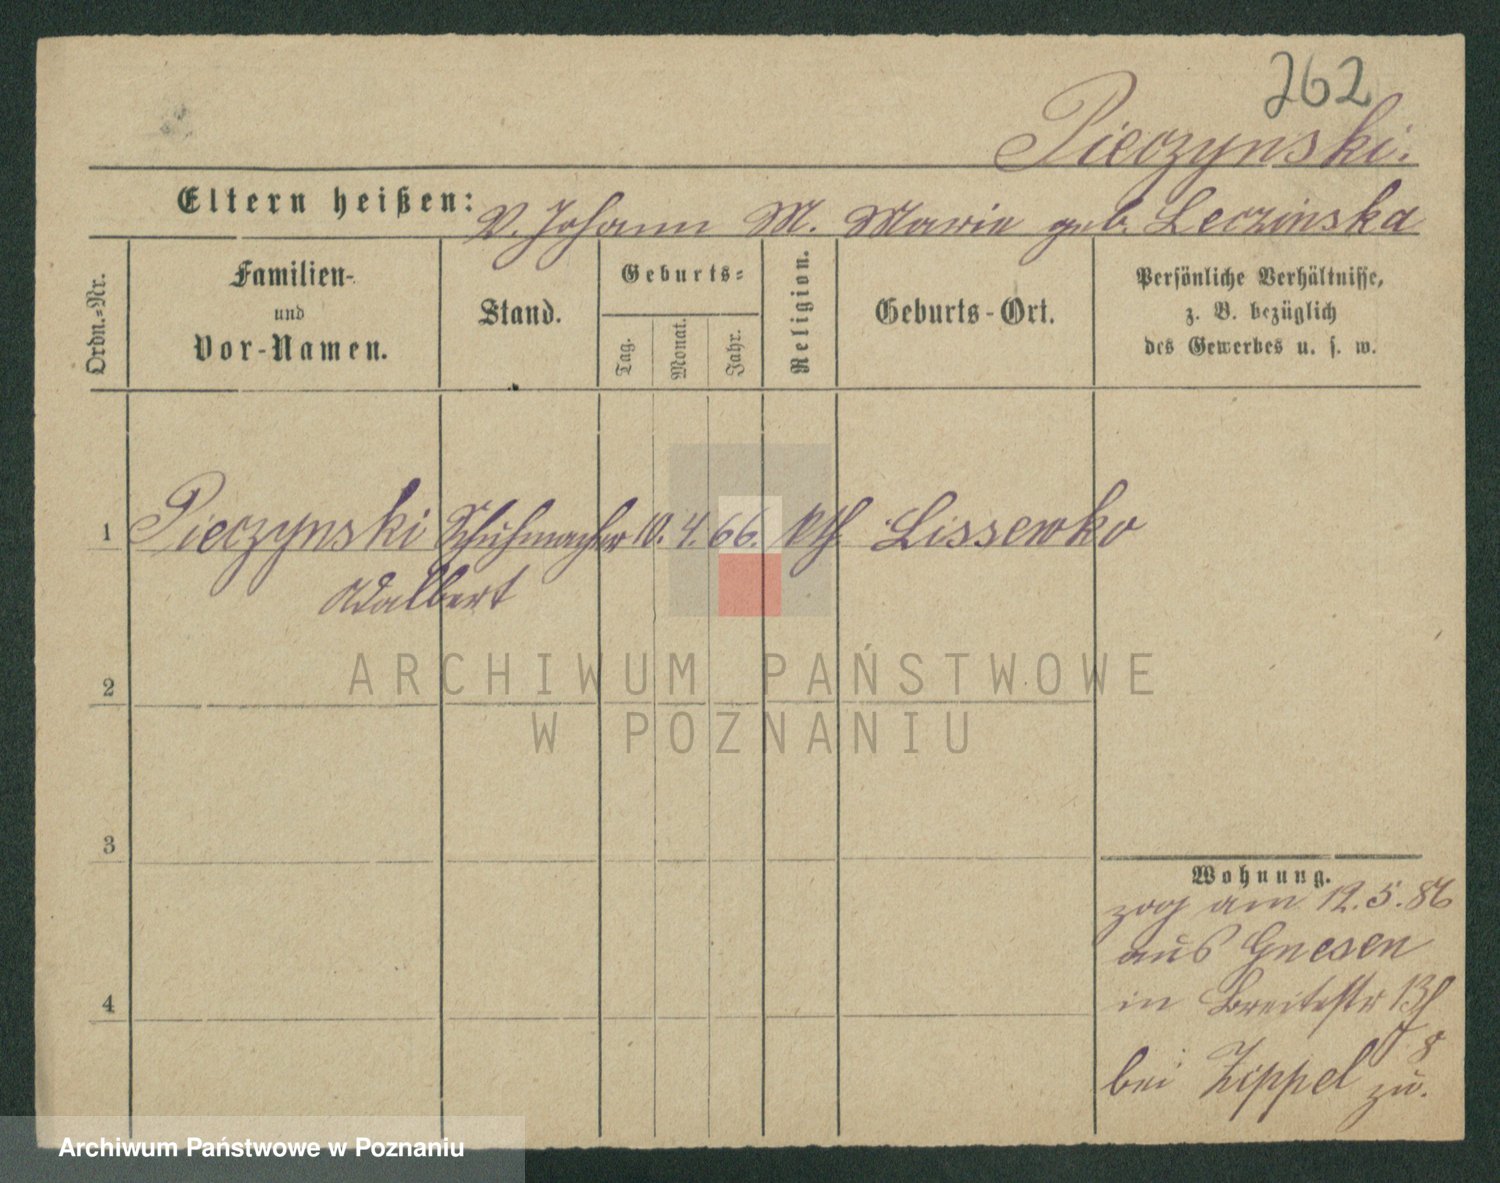 262
Pieczynski.
Eltern heißen: V. Johann M. Marie geb. Leczinska
Ordn.=Nr.
Familien-
und
Vor-Namen.
Stand.
Geburts=
Tag.
Monat.
Jahr.
Religion.
Geburts-Ort.
Persönliche Verhältnisse,
z. B. bezüglich
des Gewerbes u. s. w.
1 Pieczynski Schuhmacher 10. 4. 66. kth. Lissewko
Adalbert
2
3
4
Wohnung.
zog am 12.5.86
aus Gnesen
in Breitestr
bei Zippel zu.
ARCHIWUM PAŃSTWOWE
W POZNANIU
Archiwum Państwowe w Poznaniu